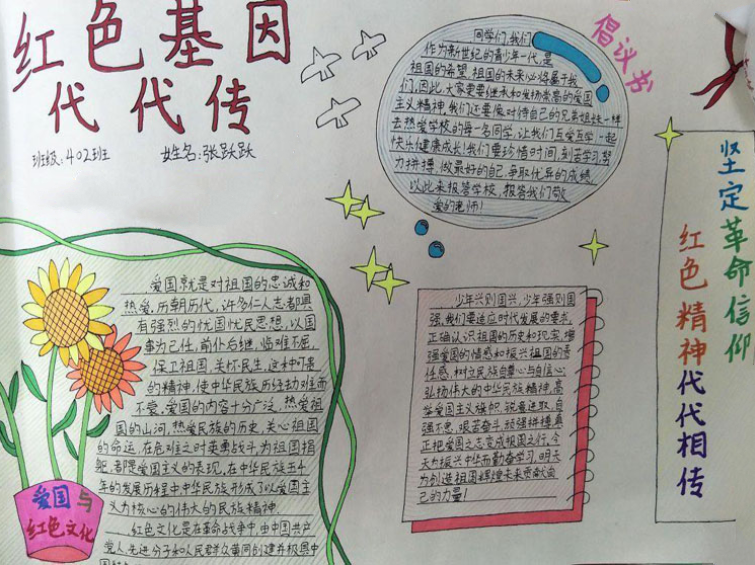 红色基因
代代传
班级:402班 姓名:张跃跃
倡议书
同学们,我们
作为新世纪的青少年一代,是
祖国的希望,祖国的未来必将属于我
们,因此,大家更要继承和发扬崇高的爱国
主义精神,我们还要像对待自己的兄弟姐妹一样
去热爱学校的每一名同学,让我们互爱互学一起
快乐健康成长!我们要珍惜时间,刻苦学习,努
力拼搏,做最好的自己,争取优异的成绩,
以此来报答学校,报答我们敬
爱的老师!
爱国就是对祖国的忠诚和
热爱,历朝历代,许多仁人志士都具
有强烈的忧国忧民思想,以国
事为己任,前仆后继,临难不屈,
保卫祖国,关怀民生,这种可贵
的精神,使中华民族历经劫难而
不衰,爱国的内容十分广泛,热爱祖
国的山河,热爱民族的历史,关心祖国
的命运,在危难之时英勇战斗,为祖国捐
躯,都是爱国主义的表现,在中华民族五千
年的发展历程中,中华民族形成了以爱国主
义为核心的伟大的民族精神.
红色文化是在革命战争中,由中国共产
党人,先进分子和人民群众共同创造并极具中
爱国与
红色文化
少年兴则国兴,少年强则国
强,我们要适应时代发展的要求,
正确认识祖国的历史和现实,增
强爱国的情感和振兴祖国的责
任感,树立民族自尊心与自信心;
弘扬伟大的中华民族精神,高
举爱国主义旗帜,锐意进取,自
强不息,艰苦奋斗,顽强拼搏,真
正把爱国之志变成报国之行,今
天为振兴中华而勤奋学习,明天
为创造祖国辉煌未来贡献自
己的力量!
坚定革命信仰
红色精神代代相传